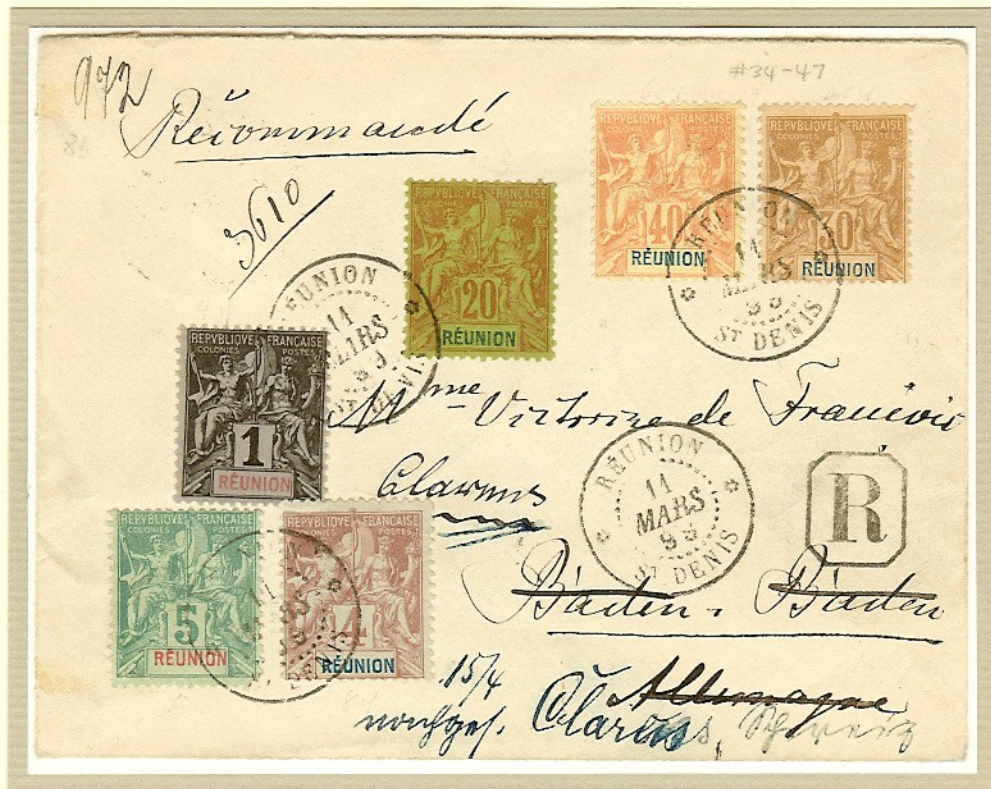 972
#34-47
Recommandé
3610
REPVBLIQVE FRANÇAISE
COLONIES POSTES
40
RÉUNION
REPVBLIQVE FRANÇAISE
COLONIES POSTES
30
RÉUNION
RÉUNION
11
MARS
ST DENIS
REPVBLIQVE FRANÇAISE
COLONIES POSTES
20
RÉUNION
RÉUNION
11
MARS
REPVBLIQVE FRANÇAISE
COLONIES POSTES
1
RÉUNION
Mme Victorine de Francois
Clarens
RÉUNION
11
MARS
ST DENIS
R
REPVBLIQVE FRANÇAISE
COLONIES POSTES
5
RÉUNION
REPVBLIQVE FRANÇAISE
COLONIES POSTES
4
RÉUNION
Baden-Baden
Allemagne
15/4
nachges. Clarens, Schweiz